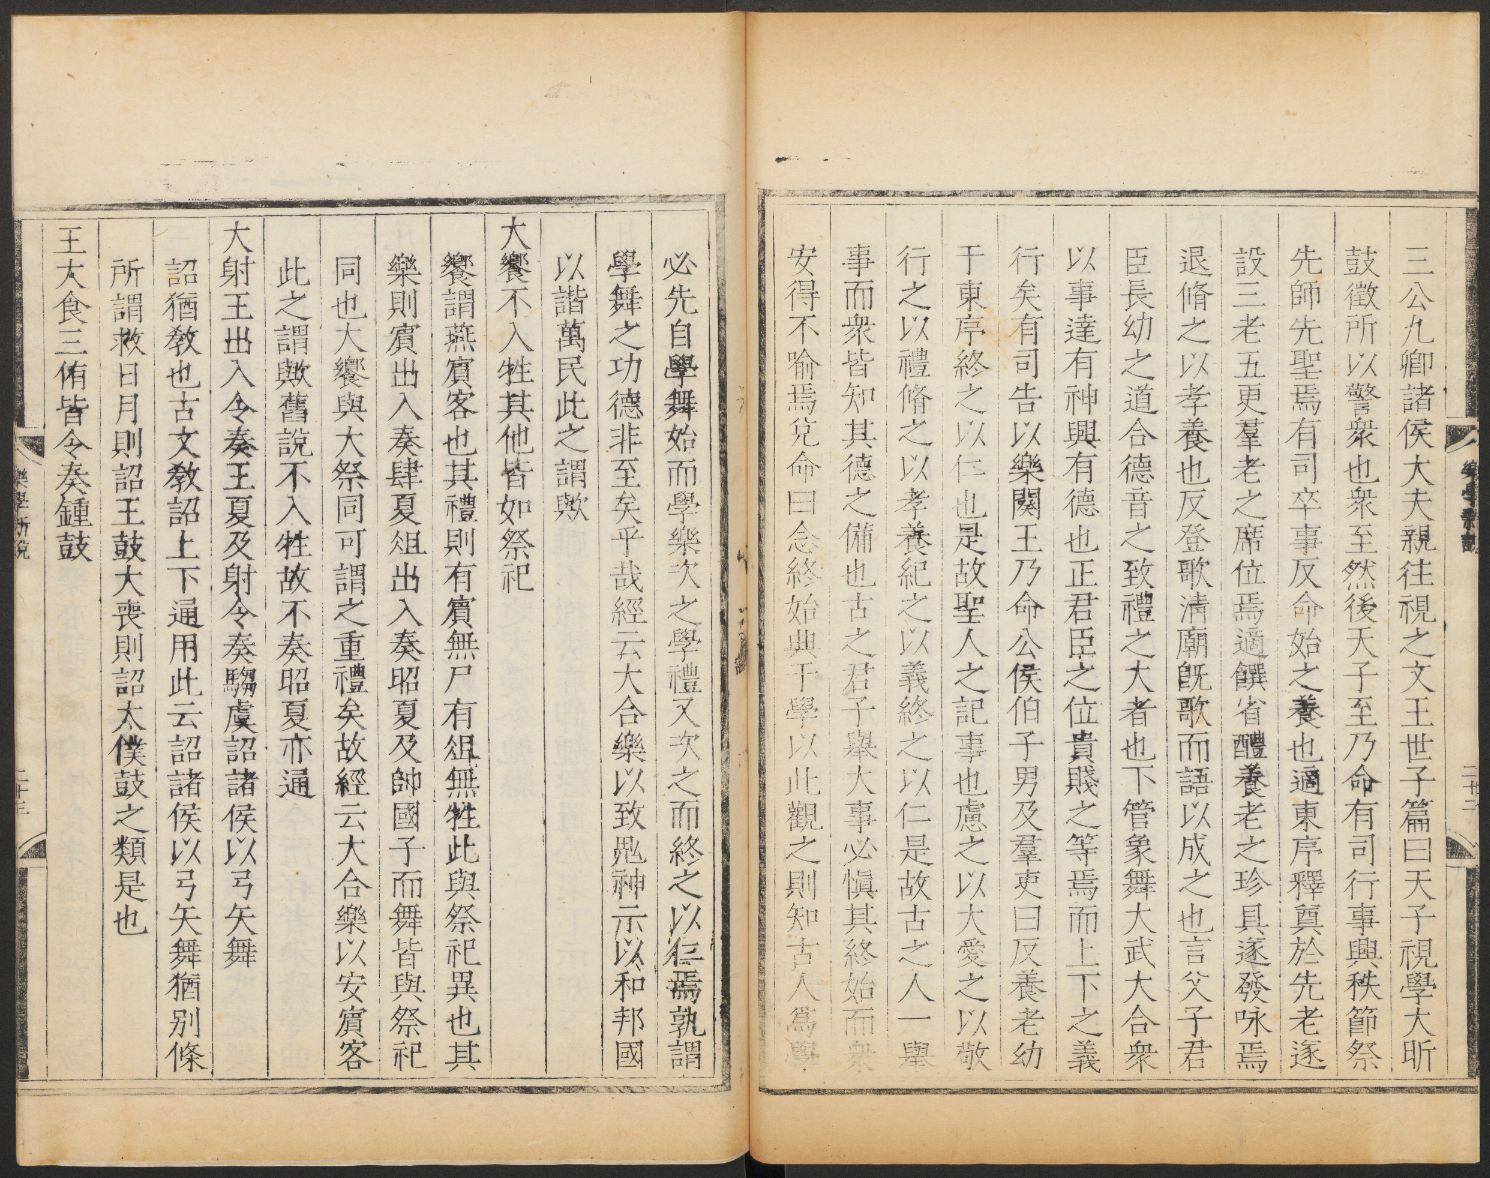 三公九卿諸侯大夫親往視之文王世子篇曰天子視學大昕
鼓徵所以警衆也衆至然後天子至乃命有司行事興秩節祭
先師先聖焉有司卒事反命始之養也適東序釋奠於先老遂
設三老五更羣老之席位焉適饌省醴養老之珍具遂發咏焉
退脩之以孝養也反登歌淸廟旣歌而語以成之也言父子君
臣長幼之道合德音之致禮之大者也下管象舞大武大合衆
以事達有神興有德也正君臣之位貴賤之等焉而上下之義
行矣有司告以樂闋王乃命公侯伯子男及羣吏曰反養老幼
于東序終之以仁也是故聖人之記事也慮之以大愛之以敬
行之以禮脩之以孝養紀之以義終之以仁是故古之人一舉
事而衆皆知其德之備也古之君子舉大事必愼其終始而衆
安得不喻焉兌命曰念終始典于學以此觀之則知古人爲學
必先自學舞始而學樂次之學禮又次之而終之以仁焉孰謂
學舞之功德非至矣乎哉經云大合樂以致鬼神示以和邦國
以諧萬民此之謂歟
大饗不入牲其他皆如祭祀
饗謂燕賓客也其禮則有賓無尸有俎無牲此與祭祀異也其
樂則賓出入奏肆夏俎出入奏昭夏及帥國子而舞皆與祭祀
同也大饗與大祭同可謂之重禮矣故經云大合樂以安賓客
此之謂歟舊說不入牲故不奏昭夏亦通
大射王出入令奏王夏及射令奏騶虞詔諸侯以弓矢舞
詔猶教也古文教詔上下通用此云詔諸侯以弓矢舞猶别條
所謂救日月則詔王鼓大喪則詔太僕鼓之類是也
王大食三侑皆令奏鍾鼓
樂學新說
二十二
樂學新說
二十三